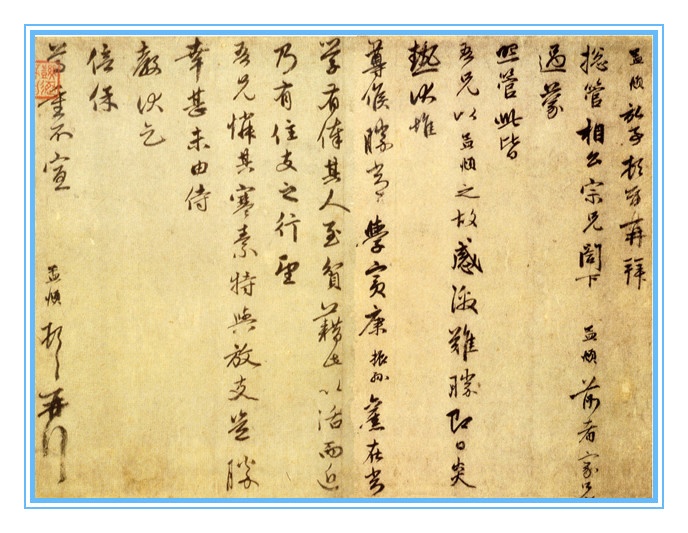 孟頫頓首再拜
總管相公宗兄閣下 孟頫前者家兄
過蒙
照管此皆
吾兄以孟頫之故感激難勝即日炎
熱伏惟
尊候勝常學賓康振孫舊在常
学有俸其人至貧藉此以活而近
乃有住支之行望
吾兄憐其寒素特與放支豈勝
幸甚未由侍
教伏乞
倍保
尊重不宣 孟頫頓首再拜